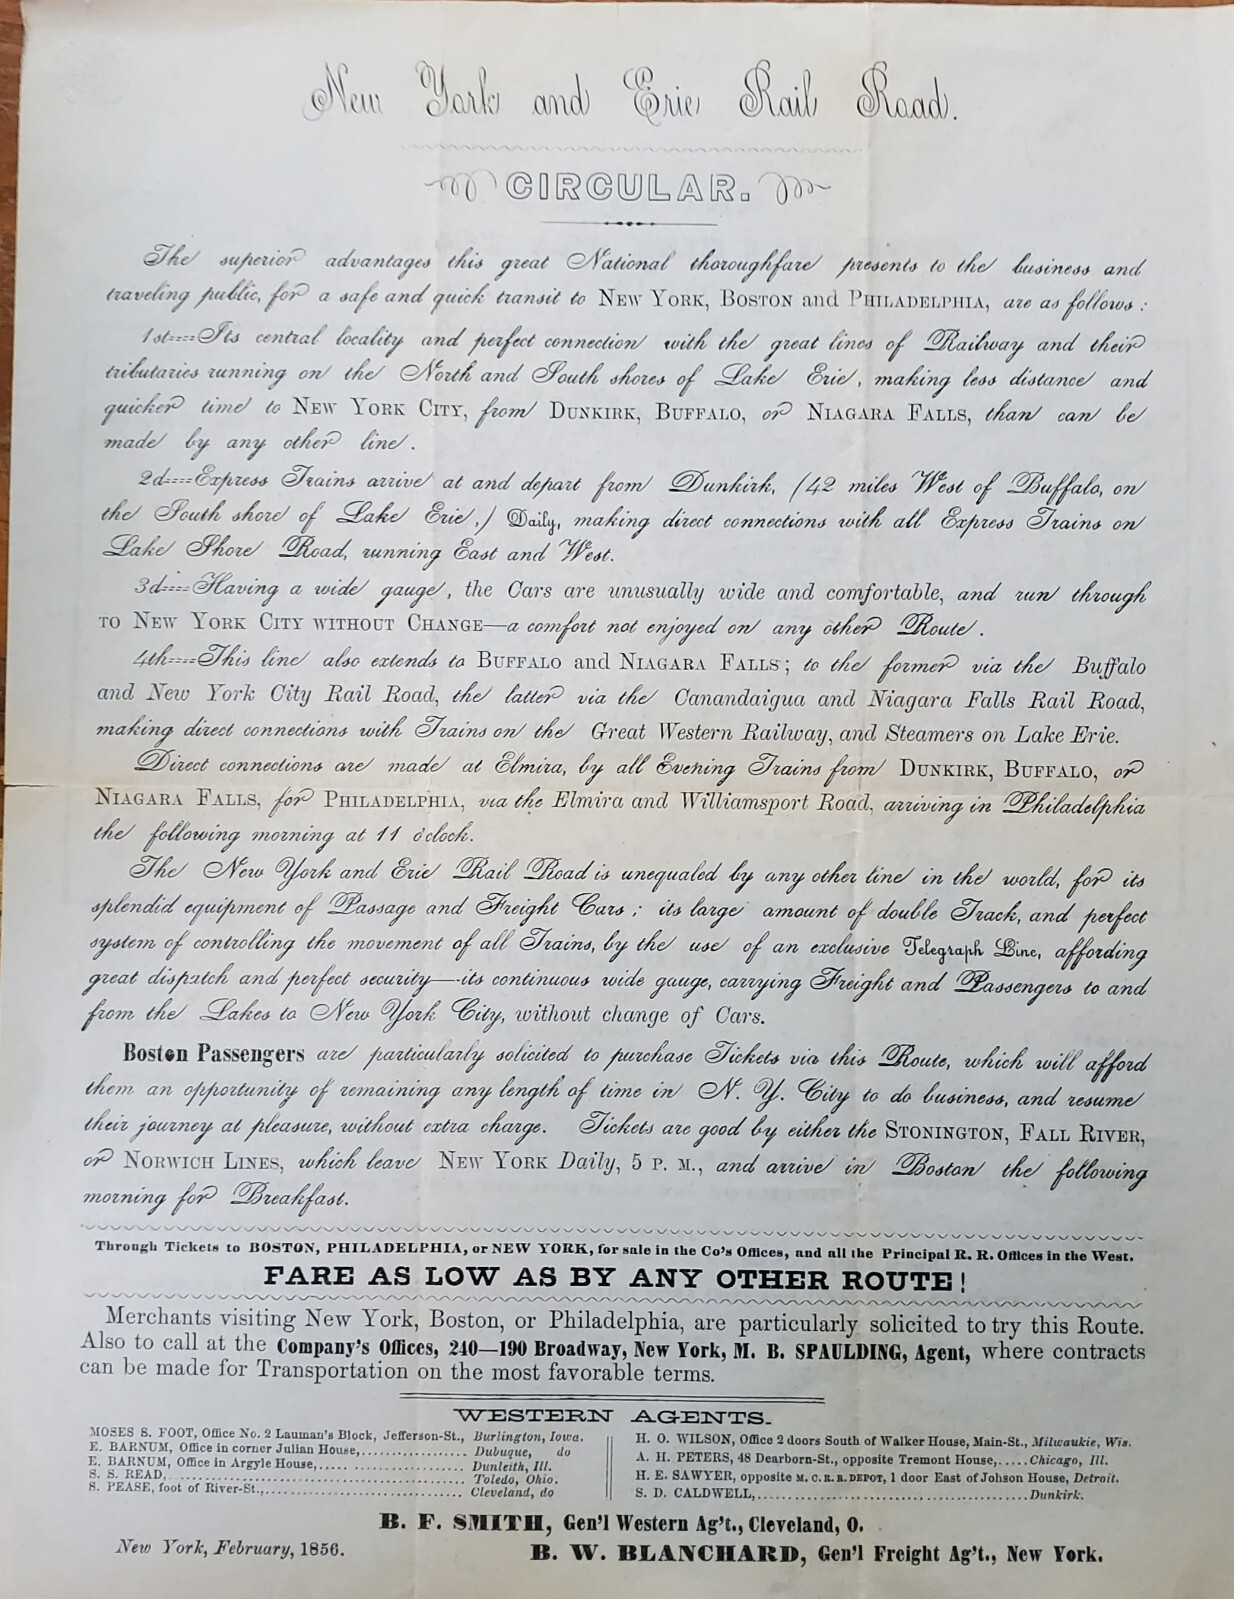 New York and Erie Rail Road.
CIRCULAR.
The superior advantages this great National thoroughfare presents to the business and
traveling public, for a safe and quick transit to NEW YORK, BOSTON and PHILADELPHIA, are as follows:
1st----Its central locality and perfect connection with the great lines of Railway and their
tributaries running on the North and South shores of Lake Erie, making less distance and
quicker time to NEW YORK CITY, from DUNKIRK, BUFFALO, or NIAGARA FALLS, than can be
made by any other line.
2d----Express Trains arrive at and depart from Dunkirk, (42 miles West of Buffalo, on
the South shore of Lake Erie,) Daily, making direct connections with all Express Trains on
Lake Shore Road, running East and West.
3d----Having a wide gauge, the Cars are unusually wide and comfortable, and run through
TO NEW YORK CITY WITHOUT CHANGE—a comfort not enjoyed on any other Route.
4th----This line also extends to BUFFALO and NIAGARA FALLS; to the former via the Buffalo
and New York City Rail Road, the latter via the Canandaigua and Niagara Falls Rail Road,
making direct connections with Trains on the Great Western Railway, and Steamers on Lake Erie.
Direct connections are made at Elmira, by all Evening Trains from DUNKIRK, BUFFALO, or
NIAGARA FALLS, for PHILADELPHIA, via the Elmira and Williamsport Road, arriving in Philadelphia
the following morning at 11 o'clock.
The New York and Erie Rail Road is unequaled by any other line in the world, for its
splendid equipment of Passage and Freight Cars; its large amount of double Track, and perfect
system of controlling the movement of all Trains, by the use of an exclusive Telegraph Line, affording
great dispatch and perfect security—its continuous wide gauge, carrying Freight and Passengers to and
from the Lakes to New York City, without change of Cars.
Boston Passengers are particularly solicited to purchase Tickets via this Route, which will afford
them an opportunity of remaining any length of time in N. Y. City to do business, and resume
their journey at pleasure, without extra charge. Tickets are good by either the STONINGTON, FALL RIVER,
or NORWICH LINES, which leave NEW YORK Daily, 5 P. M., and arrive in Boston the following
morning for Breakfast.
Through Tickets to BOSTON, PHILADELPHIA, or NEW YORK, for sale in the Co's Offices, and all the Principal R. R. Offices in the West.
FARE AS LOW AS BY ANY OTHER ROUTE!
Merchants visiting New York, Boston, or Philadelphia, are particularly solicited to try this Route.
Also to call at the Company's Offices, 240—190 Broadway, New York, M. B. SPAULDING, Agent, where contracts
can be made for Transportation on the most favorable terms.
WESTERN AGENTS.
MOSES S. FOOT, Office No. 2 Lauman's Block, Jefferson-St., Burlington, Iowa.
E. BARNUM, Office in corner Julian House,.................. Dubuque, do
E. BARNUM, Office in Argyle House,......................... Dunleith, Ill.
S. S. READ,................................................ Toledo, Ohio.
S. PEASE, foot of River-St.,............................... Cleveland, do
H. O. WILSON, Office 2 doors South of Walker House, Main-St., Milwaukie, Wis.
A. H. PETERS, 48 Dearborn-St., opposite Tremont House,.....Chicago, Ill.
H. E. SAWYER, opposite M. C. R. R. DEPOT, 1 door East of Johson House, Detroit.
S. D. CALDWELL,.............................................Dunkirk.
B. F. SMITH, Gen'l Western Ag't., Cleveland, O.
New York, February, 1856.
B. W. BLANCHARD, Gen'l Freight Ag't., New York.